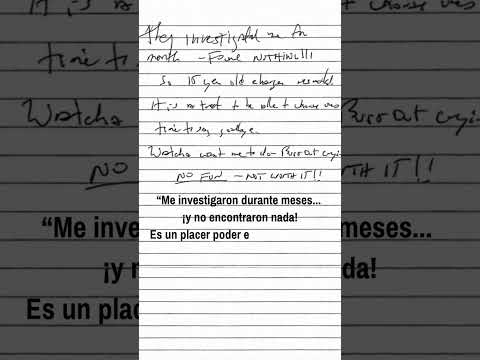 They investigated me for
month – Found NOTHING!!!
So 15 year old charges
It is a treat to be able to choose ones
time to say goodbye
Watcha want me to do – Burst out crying
NO FUN – NOT WORTH IT!!
“Me investigaron durante meses...
¡y no encontraron nada!
Es un placer poder e